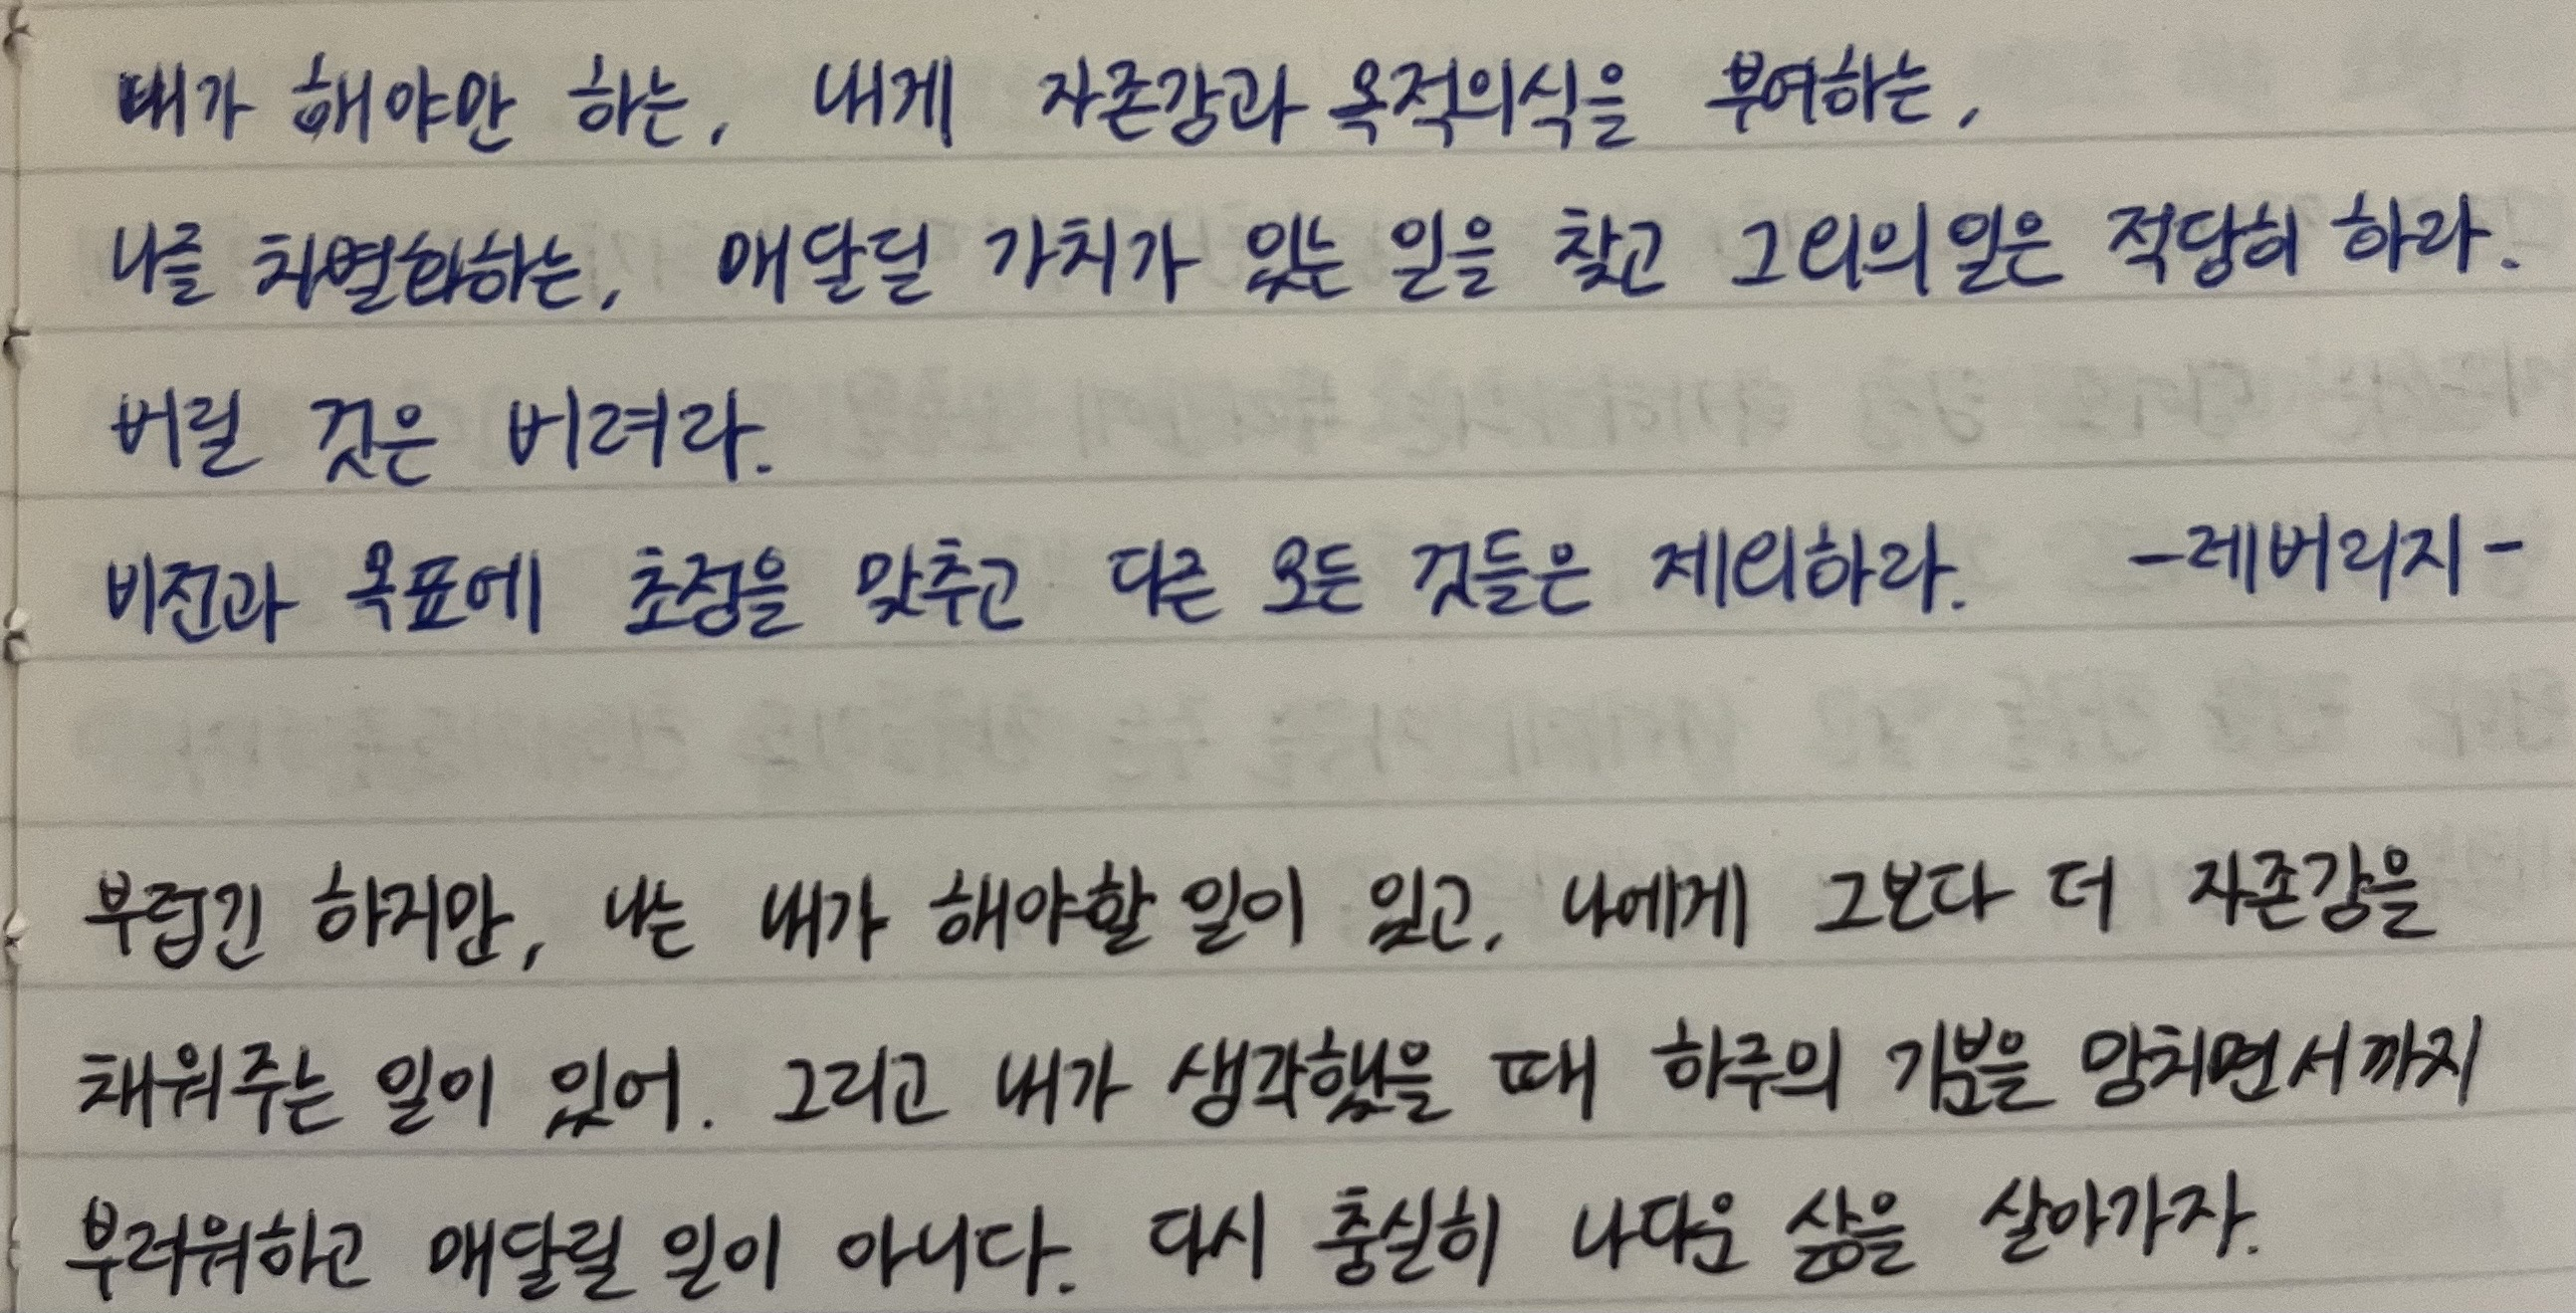 내가 해야만 하는, 내게 자존감과 목적의식을 부여하는,
나를 차별화하는, 매달릴 가치가 있는 일을 찾고 그외의 일은 적당히 하라.
버릴 것은 버려라.
비전과 목표에 초점을 맞추고 다른 모든 것들은 제외하라. -레버리지-
부럽긴 하지만, 나는 내가 해야할 일이 있고, 나에게 그보다 더 자존감을
채워주는 일이 있어. 그리고 내가 생각했을 때 하루의 기분을 망치면서까지
부러워하고 매달릴 일이 아니다. 다시 충실히 나다운 삶을 살아가자.